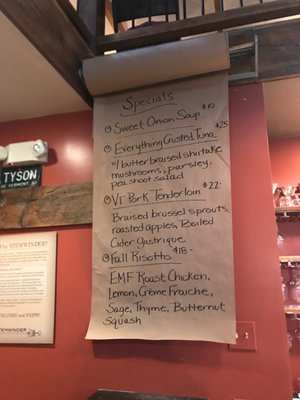 Specials
Sweet Onion Soup $10
Everything Crusted Tuna $25
w/ butter braised shiitake
mushrooms, parsley,
pea shoot salad
VT Pork Tenderloin $22
Braised brussel sprouts,
roasted apples, Boiled
Cider Gastrique
Fall Risotto $18-
EMF Roast Chicken,
Lemon, Crème Fraiche,
Sage, Thyme, Butternut
Squash
TYSON
VERMONT AV
STEMWINDER
ENJOY
STEMWINDER